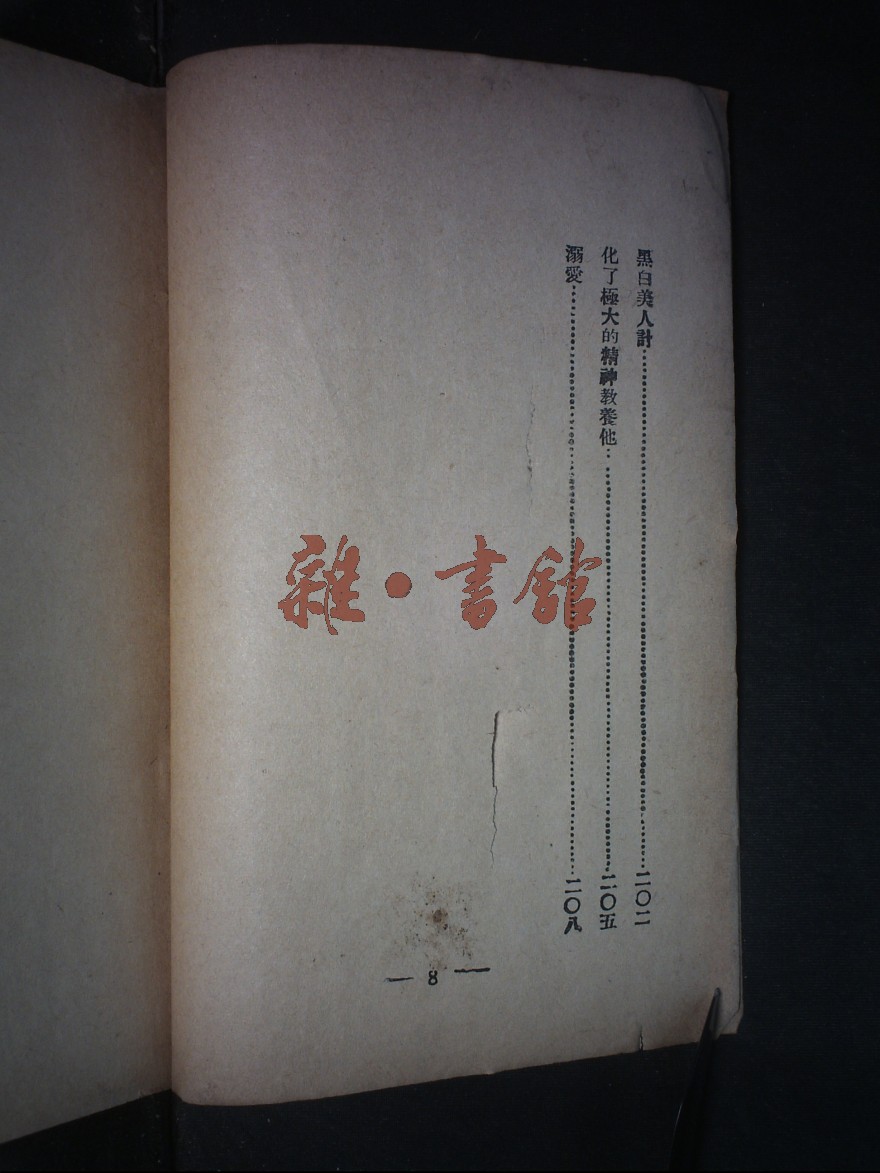 黑白美人計……二〇二
化了極大的精神教養他……二〇五
溺愛……二〇八
— 8 —
雜·書館